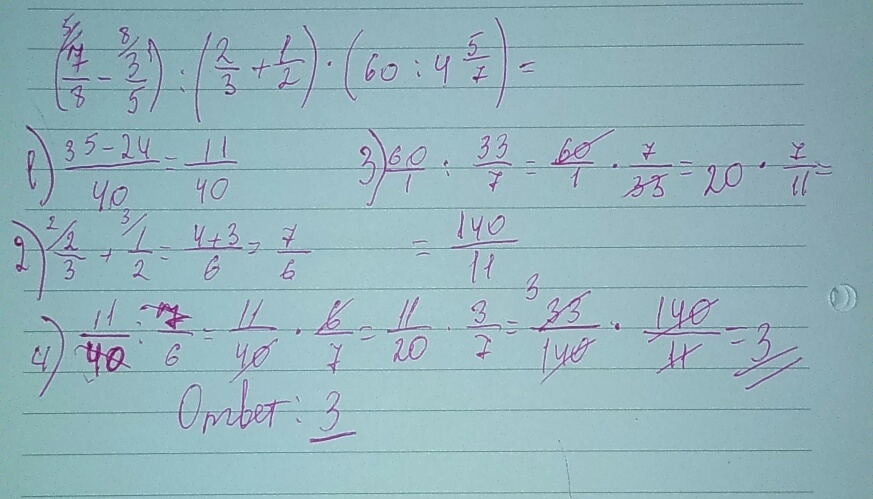 (7/8 - 3/5) : (2/3 + 1/2) · (60 : 4 5/7) =
1) (35-24)/40 = 11/40
3) 60/1 : 33/7 = 60/1 · 7/33 = 20 · 7/11 =
= 140/11
2) 2/3 + 1/2 = (4+3)/6 = 7/6
4) 11/40 : 7/6 = 11/40 · 6/7 = 11/20 · 3/7 = 33/140 · 140/11 = 3
Ответ: 3